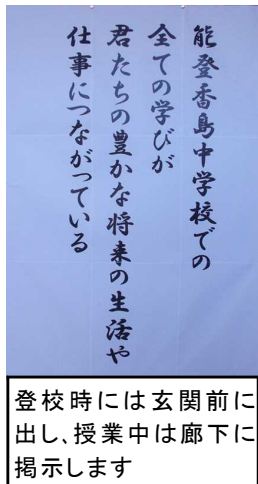 能登香島中学校での
全ての学びが
君たちの豊かな将来の生活や
仕事につながっている
登校時には玄関前に
出し、授業中は廊下に
掲示します